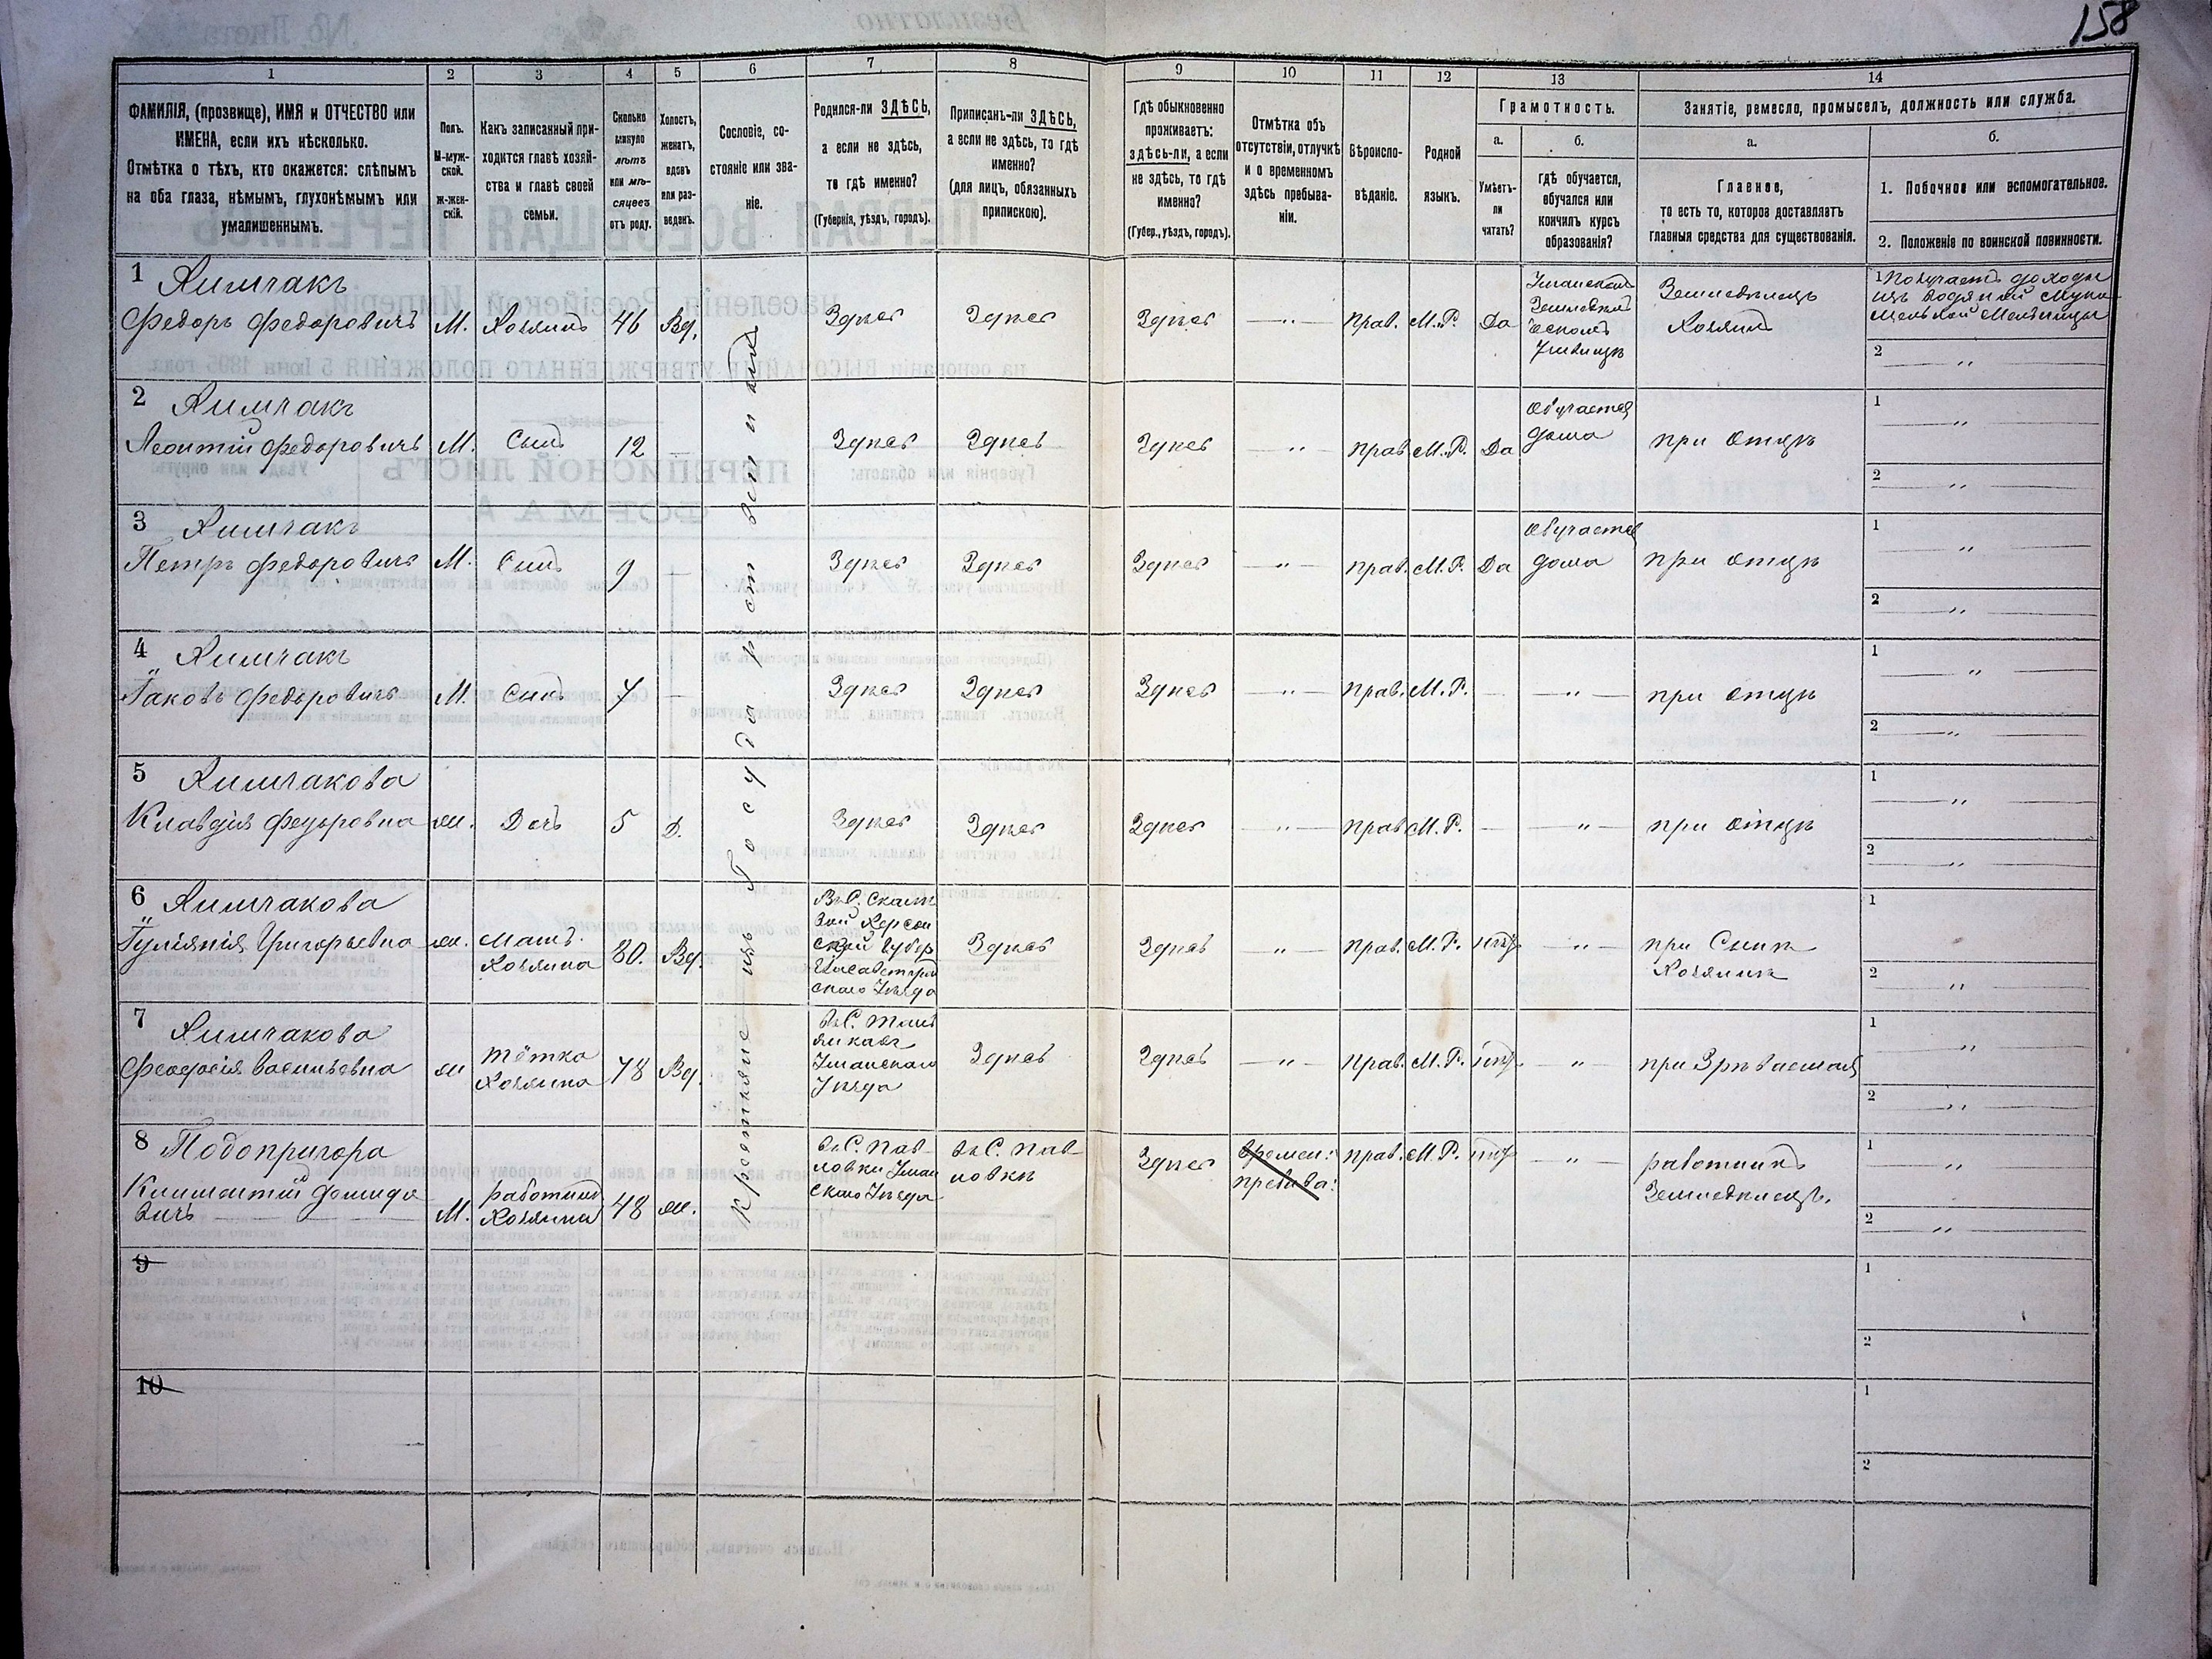 158
1
2
3
4
5
6
7
8
9
10
11
12
13
14
ФАМИЛІЯ, (прозвище), ИМЯ и ОТЧЕСТВО или
ИМЕНА, если ихъ нѣсколько.
Отмѣтка о тѣхъ, кто окажется: слѣпымъ
на оба глаза, нѣмымъ, глухонѣмымъ или
умалишеннымъ.
Полъ.
М-муж-
ской.
ж-жен-
скій.
Какъ записанный при-
ходится главѣ хозяй-
ства и главѣ своей
семьи.
Сколько
минуло
лѣтъ
или мѣ-
сяцевъ
отъ роду.
Холостъ,
женатъ,
вдовъ
или раз-
веденъ.
Сословіе, со-
стояніе или зва-
ніе.
Родился-ли ЗДѢСЬ,
а если не здѣсь,
то гдѣ именно?
(Губернія, уѣздъ, городъ).
Приписанъ-ли ЗДѢСЬ,
а если не здѣсь, то гдѣ
именно?
(для лицъ, обязанныхъ
припискою).
Гдѣ обыкновенно
проживаетъ:
здѣсь-ли, а если
не здѣсь, то гдѣ
именно?
(Губер., уѣздъ, городъ).
Отмѣтка объ
отсутствіи, отлучкѣ
и о временномъ
здѣсь пребыва-
ніи.
Вѣроиспо-
вѣданіе.
Родной
языкъ.
Грамотность.
а.
Умѣетъ-
ли
читать?
б.
гдѣ обучается,
обучался или
кончилъ курсъ
образованія?
Занятіе, ремесло, промыселъ, должность или служба.
а.
Главное,
то есть то, которое доставляетъ
главныя средства для существованія.
б.
1. Побочное или вспомогательное.
2. Положеніе по воинской повинности.
Крестьяне изъ Государственниковъ
1 Химчакъ
Федоръ Федоровичъ
М.
Хозяинъ
46
Вд.
Здѣсь
Здѣсь
Здѣсь
— „ —
Прав.
М. Р.
Да
Уманскомъ
Училищѣ
Земледѣлецъ
Хозяинъ
1 Получаетъ доходы
изъ водяной муко-
мельной Мельницы
2 — „ —
2 Химчакъ
Леонтій Федоровичъ
М.
Сынъ
12
—
Здѣсь
Здѣсь
Здѣсь
— „ —
Прав.
М. Р.
Да
Обучается
дома
при отцѣ
1 — „ —
2 — „ —
3 Химчакъ
Петръ Федоровичъ
М.
Сынъ
9
—
Здѣсь
Здѣсь
Здѣсь
— „ —
Прав.
М. Р.
Да
Обучается
дома
при отцѣ
1 — „ —
2 — „ —
4 Химчакъ
Їаковъ Федоровичъ
М.
Сынъ
7
—
Здѣсь
Здѣсь
Здѣсь
— „ —
Прав.
М. Р.
—
— „ —
при отцѣ
1 — „ —
2 — „ —
5 Химчакова
Клавдія Федоровна
ж.
Дочь
5
Д.
Здѣсь
Здѣсь
Здѣсь
— „ —
Прав.
М. Р.
—
— „ —
при отцѣ
1 — „ —
2 — „ —
6 Химчакова
Їуліянія Григорьевна
ж.
Мать
Хозяина
80.
Вд.
Херсон
ской Губер.
Елисаветград
скаго Уѣзда
Здѣсь
Здѣсь
— „ —
Прав.
М. Р.
нѣтъ
— „ —
при Сынѣ
Хозяинѣ
1
2 — „ —
7 Химчакова
Феодосія Васильевна
ж
тётка
Хозяина
78
Вд.
въ С. Таль
янкахъ
Уманскаго
Уѣзда
Здѣсь
Здѣсь
— „ —
Прав.
М. Р.
нѣтъ
„
1 — „ —
2 — „ —
8 Подопригора
Климентій Демидо
вичъ
М.
работникъ
Хозяина
48
ж.
въ С. Пав
ловки Уман
скаго Уѣзда
въ С. Пав
ловкѣ
Здѣсь
времен:
пребыва:
Прав.
М. Р.
нѣтъ
— „ —
работникъ
Земледѣлецъ.
1 — „ —
2 — „ —
9
1
2
10
1
2